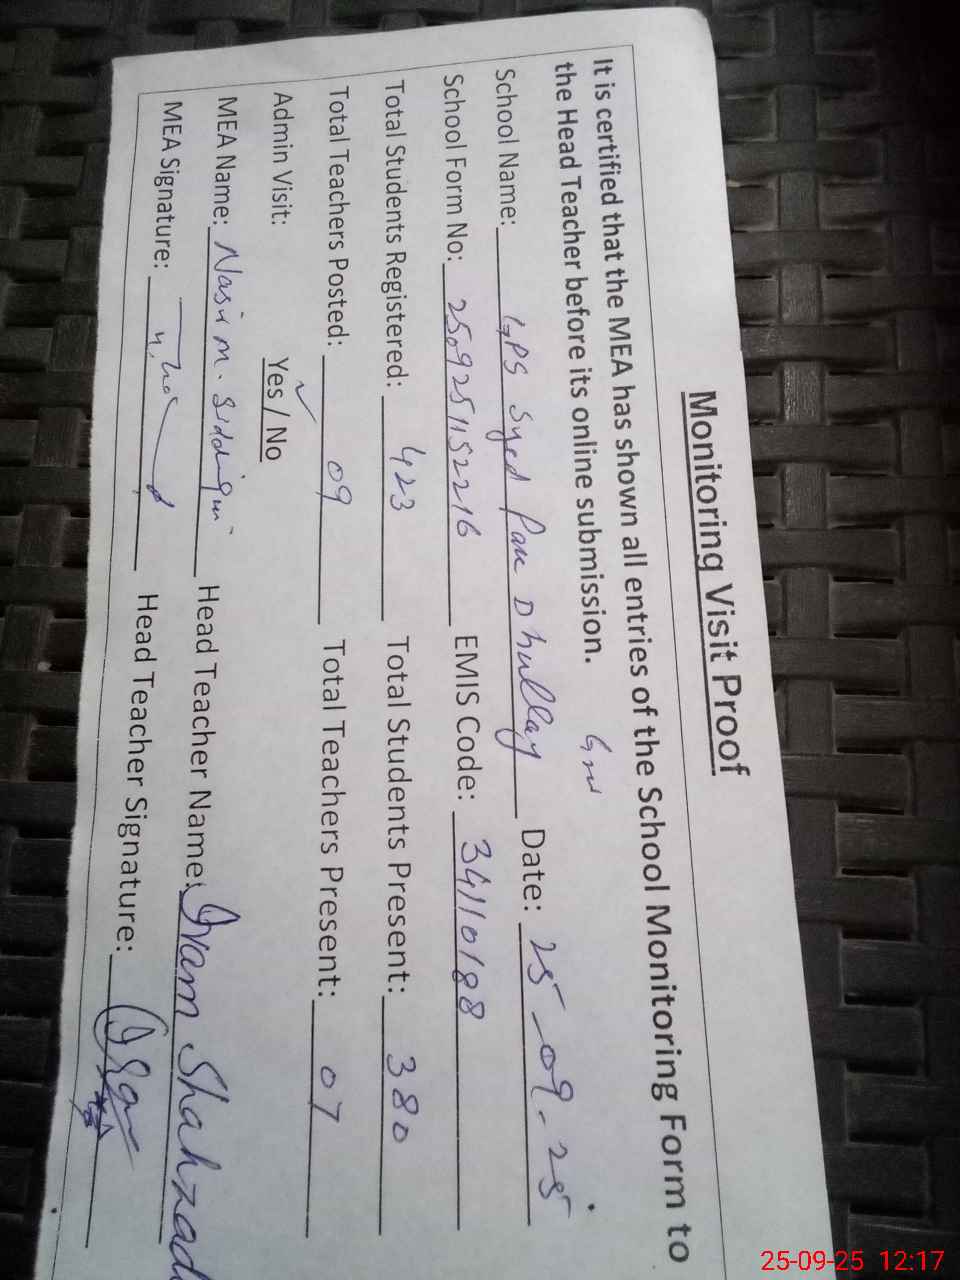 Monitoring Visit Proof
It is certified that the MEA has shown all entries of the School Monitoring Form to
the Head Teacher before its online submission.
School Name: GPS Syed Pau Dhullay Date: 25-09-25
School Form No: 2509251152216 EMIS Code: 34110188
Total Students Registered: 423 Total Students Present: 380
Total Teachers Posted: 09 Total Teachers Present: 07
Admin Visit: Yes / No
MEA Name: Nasir M. Siddiqui Head Teacher Name: Iram Shahzad
MEA Signature: Head Teacher Signature:
25-09-25 12:17